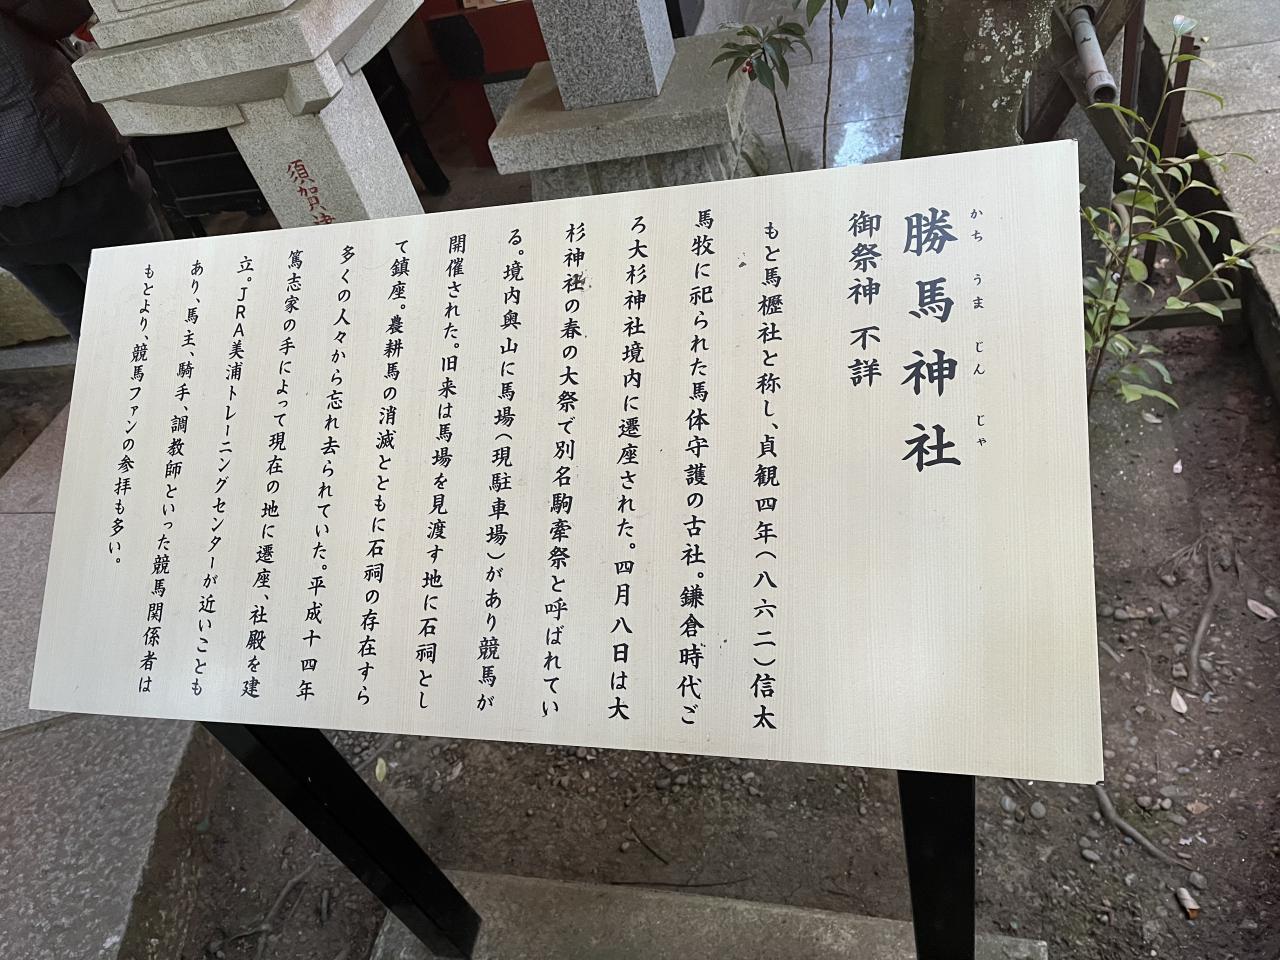 かちうまじんじゃ
勝馬神社
御祭神 不詳
もと馬櫪社と称し、貞観四年(八六二)信太
馬牧に祀られた馬体守護の古社。鎌倉時代ご
ろ大杉神社境内に遷座された。四月八日は大
杉神社の春の大祭で別名駒牽祭と呼ばれてい
る。境内奥山に馬場(現駐車場)があり競馬が
開催された。旧来は馬場を見渡す地に石祠とし
て鎮座。農耕馬の消滅とともに石祠の存在すら
多くの人々から忘れ去られていた。平成十四年
篤志家の手によって現在の地に遷座、社殿を建
立。JRA美浦トレーニングセンターが近いことも
あり、馬主、騎手、調教師といった競馬関係者は
もとより、競馬ファンの参拝も多い。
須賀津